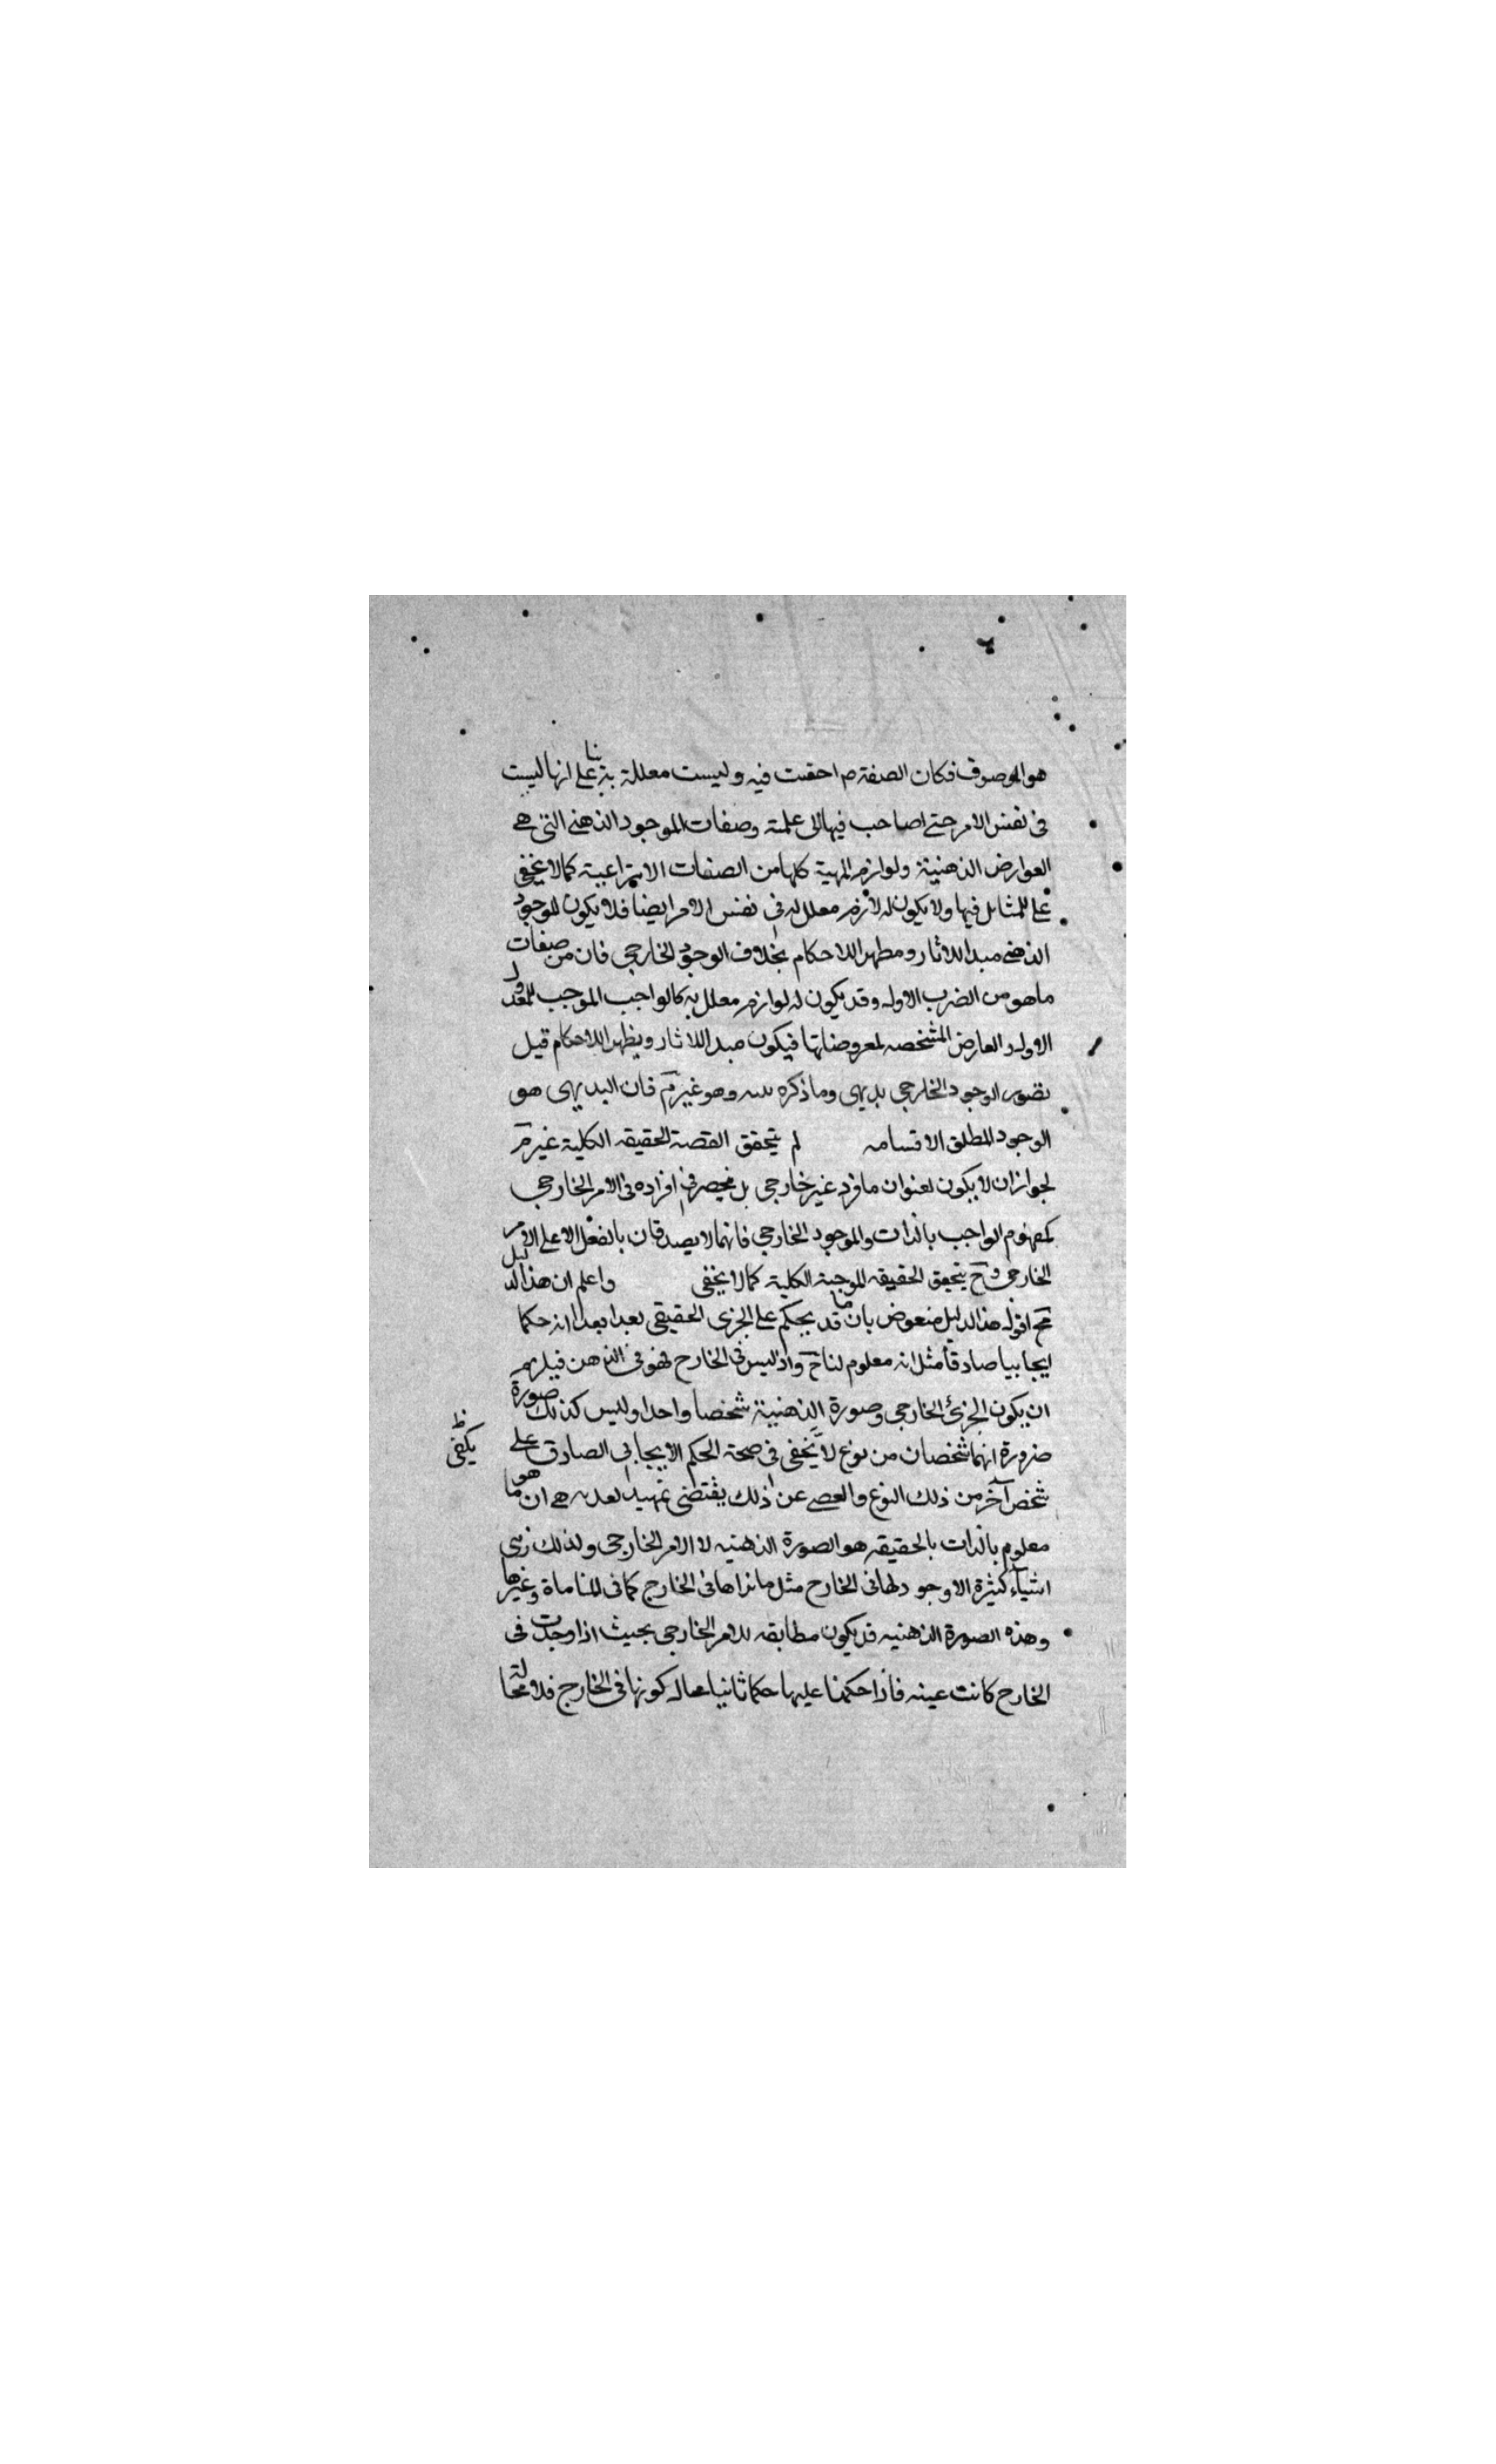 هو الموصوف فكان الصفة ما حقت فيه وليست معللة به بنا على انها ليست
فى نفس الامر حتى اصاحب فيها الى علته وصفات الموجود الذهنى التى هى
العوارض الذهنية ولوازم المهية كلها من الصفات الانتزاعية كما لا يخفى
على المتامل فيها ولا يكون له لازم معلل له فى نفس الامر ايضا فلا يكون للموجود
الذهنى مبدا للاثار ومظهر للاحكام بخلاف الوجود الخارجى فان من صفات
ما هو من الضرب الاول وقد يكون له لوازم معلل به كالواجب الموجب للمعلول
الاول والعارض المشخصه لمعروضاتها فيكون مبدا للاثار ويظهر للاحكام قيل
تصور الوجود الخارجى بديهى وما ذكره وهو غير مم فان البديهى هو
الوجود المطلق الاقسامه لم يتحقق القصة الحقيقه الكلية غير مم
لجواز ان لا يكون لعنوان ما فرد غير خارجى بل منحصر فى افراده فى الامر الخارجى
كمفهوم الواجب بالذات والموجود الخارجى فانهما لا يصدقان بالفعل الا على الامر
الخارجى وح يتحقق الحقيقه الموجبة الكلية كما لا يخفى واعلم ان هذا الدليل
اقول هذا الدليل منقوض بان ما قد يحكم على الجزى الحقيقى بعد انعدامه حكما
ايجابيا صادقا مثل انه معلوم لنا ح واذ ليس فى الخارج فهو فى الذهن فيلزم
ان يكون الجزئ الخارجى وصورة الذهنية شخصا واحدا وليس كذلك صورة
ضرورة انهما شخصان من نوع لا يخفى فى صحة الحكم الايجابى الصادق على
يكفى
شخص آخر من ذلك النوع والعصى عن ذلك يقتضى تمهيد هى ان ما هو
معلوم بالذات بالحقيقه هو الصورة الذهنيه لا الامر الخارجى ولذلك نرى
اشيآء كثيرة لا وجود لها فى الخارج مثل ما نراها فى الخارج كما فى المنامات وغيرها
وهذه الصورة الذهنيه قد يكون مطابقه للامر الخارجى بحيث اذا وجدت فى
الخارج كانت عينه فاذا حكمنا عليها حكما ثانيا محاله كونها فى الخارج فلا محالة